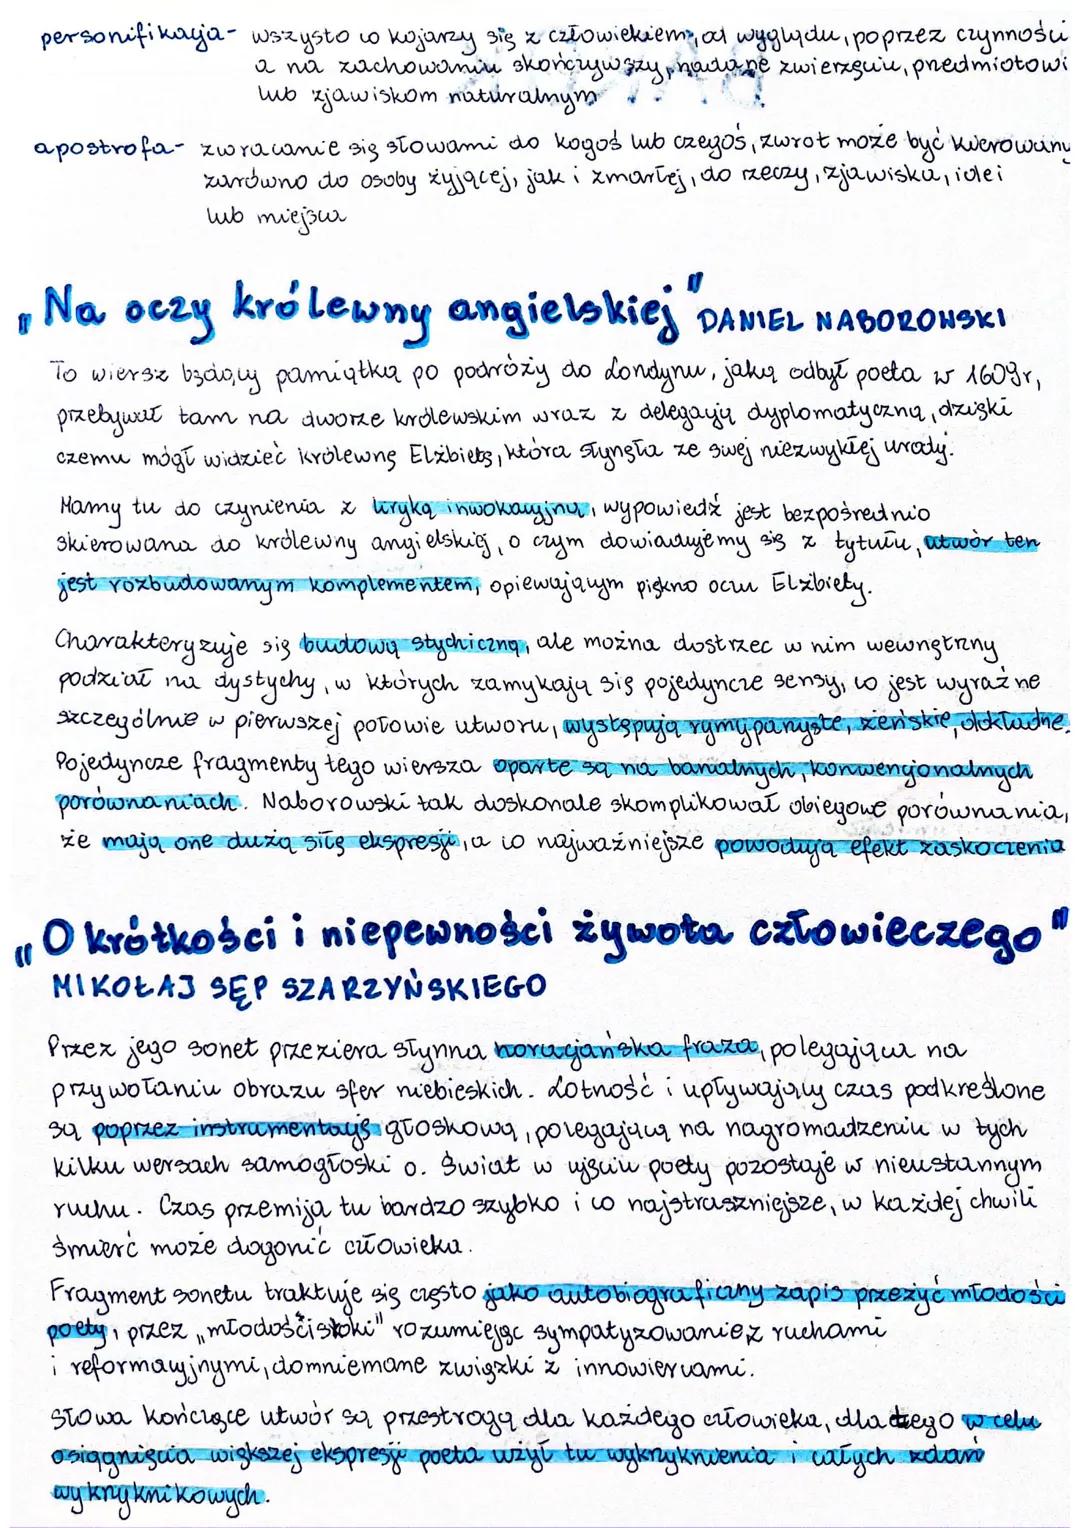 personifikacja- wszysto co kojarzy się z człowiekiem, od wyglądu, poprzez czynności
a na zachowaniu skończywszy, nadane zwierzęciu, przedmiotowi
lub zjawiskom naturalnym
apostrofa- zwracanie się słowami do kogoś lub czegoś, zwrot może być kierowany
zarówno do osoby żyjącej, jak i zmarłej, do rzeczy, zjawiska, idei
lub miejsca
„Na oczy królewny angielskiej" DANIEL NABOROWSKI
To wiersz będący pamiątką po podróży do Londynu, jaką odbył poeta w 1609r,
przebywał tam na dworze królewskim wraz z delegacją dyplomatyczną, dzięki
czemu mógł widzieć królewnę Elżbietę, która słynęła ze swej niezwykłej urody.
Mamy tu do czynienia z liryką inwokacyjną, wypowiedź jest bezpośrednio
skierowana do królewny angielskiej, o czym dowiadujemy się z tytułu, utwór ten
jest rozbudowanym komplementem, opiewającym piękno oczu Elżbiety.
Charakteryzuje się budową stychiczną, ale można dostrzec w nim wewnętrzny
podział na dystychy, w których zamykają się pojedyncze sensy, co jest wyraźne
szczególnie w pierwszej połowie utworu, występują rymy parzyste, żeńskie, dokładne.
Pojedyncze fragmenty tego wiersza oparte są na banalnych, konwencjonalnych
porównaniach. Naborowski tak doskonale skomplikował obiegowe porównania,
że mają one dużą siłę ekspresji, a co najważniejsze powodują efekt zaskoczenia
„O krótkości i niepewności żywota człowieczego"
MIKOŁAJ SĘP SZARZYŃSKIEGO
Przez jego sonet przeziera słynna horacjańska fraza, polegająca na
przywołaniu obrazu sfer niebieskich. Lotność i upływający czas podkreślone
są poprzez instrumentację głoskową, polegającą na nagromadzeniu w tych
kilku wersach samogłoski o. Świat w ujęciu poety pozostaje w nieustannym
ruchu. Czas przemija tu bardzo szybko i co najstraszniejsze, w każdej chwili
śmierć może dogonić człowieka.
Fragment sonetu traktuje się często jako autobiograficzny zapis przeżyć młodości
poety, przez „młodości stoki" rozumiejąc sympatyzowanie z ruchami
i reformacyjnymi, domniemane związki z innowiercami.
Słowa kończące utwór są przestrogą dla każdego człowieka, dlatego w celu
osiągnięcia większej ekspresji poeta użył tu wykrzyknienia i całych zdań
wykrzyknikowych.